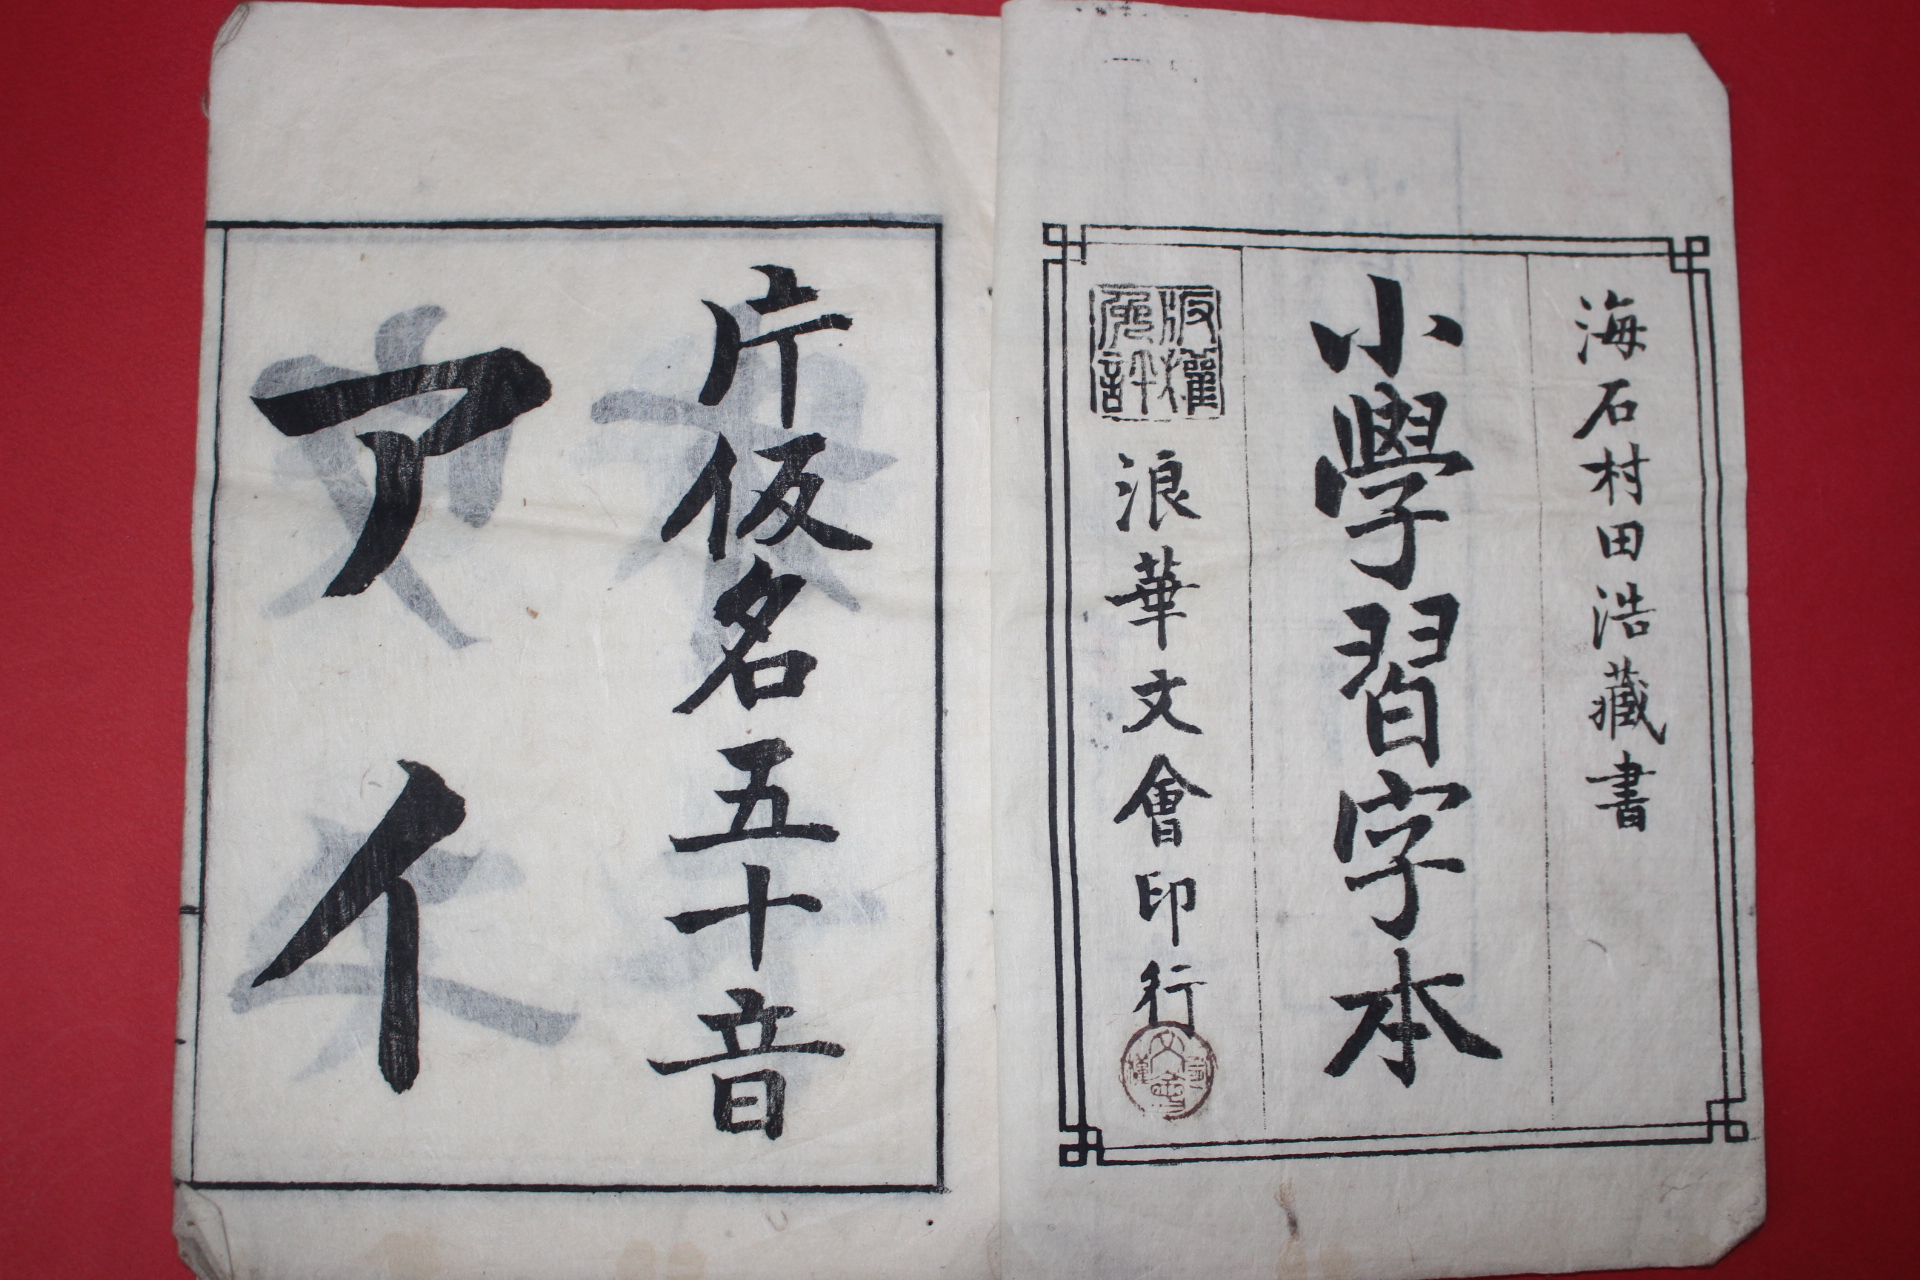 海石村田浩藏書
小學習字本
版權免許
浪華文會印行
片仮名五十音
アイ